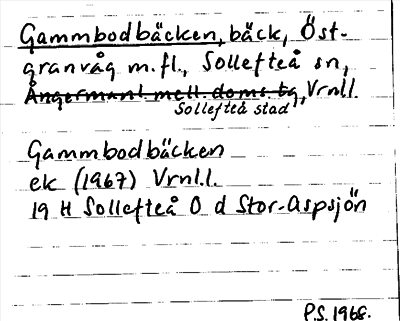 Gammbodbäcken, bäck, Öst-
granvåg m.fl., Sollefteå sn,
Ångermanl. mell. doms. tg, Vrnl.l.
Sollefteå stad
Gammbodbäcken
ek (1967) Vrnl.l.
19 H Sollefteå O d Stor-Aspsjön
P.S. 1968.